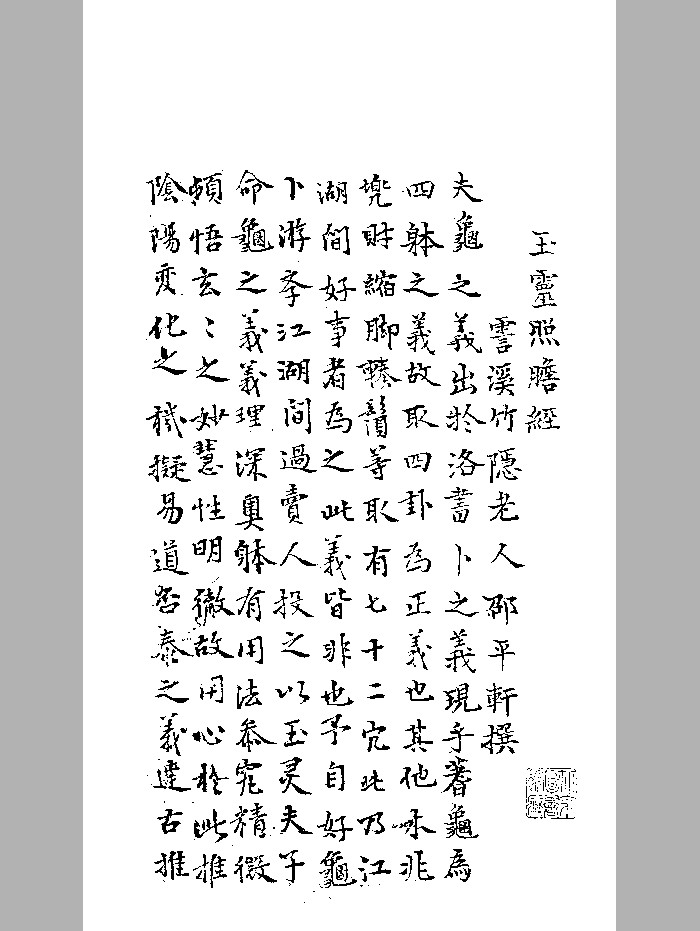 玉靈照瞻經
霅溪竹隱老人邵平軒撰
夫龜之義出於洛書卜之義現乎蓍龜為
四躰之義故取四卦為正義也其他咏非
兠財縮脚蓁鬚等取有七十二宂此乃江
湖間好事者為之此義皆非也予自好龜
卜游李江湖間過賣人投之以玉灵夫子
命龜之義義理深奧躰有用法叅究精微
頓悟玄〻之妙慧性明徹故用心於此推
陰陽变化之機擬易道否泰之義達古推